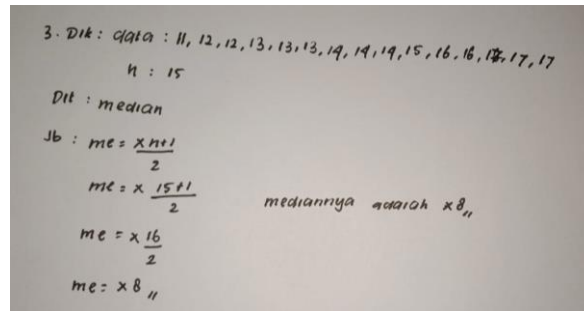 3. Dik : data : 11, 12, 12, 13, 13, 13, 14, 14, 14, 15, 16, 16, 17, 17, 17
n : 15
Dit : median
Jb : me = x n+1
2
me = x 15+1
2
mediannya adalah x8,,
me = x 16
2
me = x 8 ,,